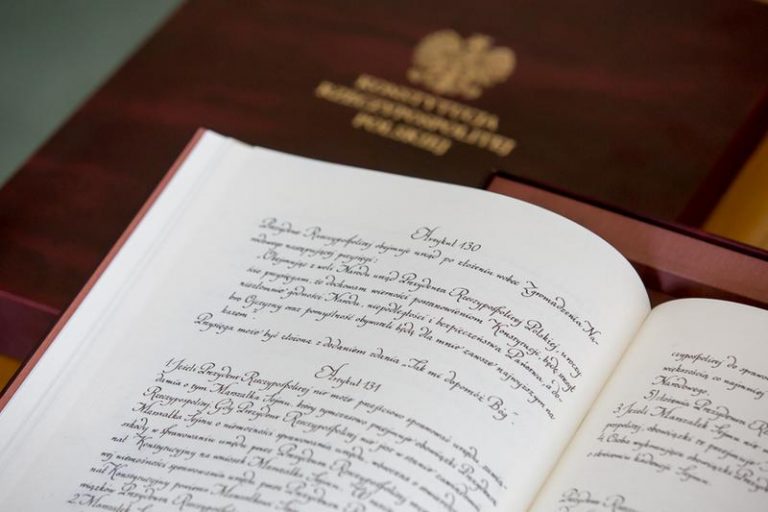 KONSTYTUCJA
RZECZYPOSPOLITEJ
POLSKIEJ
Artykuł 130
Prezydent Rzeczypospolitej obejmuje urząd po złożeniu wobec Zgromadzenia Na-
rodowego następującej przysięgi:
„Obejmując z woli Narodu urząd Prezydenta Rzeczypospolitej Polskiej, uroczy-
ście przysięgam, że dochowam wierności postanowieniom Konstytucji, będę strzegł
niezłomnie godności Narodu, niepodległości i bezpieczeństwa Państwa, a do-
bro Ojczyzny oraz pomyślność obywateli będą dla mnie zawsze najwyższym na-
kazem".
Przysięga może być złożona z dodaniem zdania „Tak mi dopomóż Bóg".
Artykuł 131
1. Jeżeli Prezydent Rzeczypospolitej nie może przejściowo sprawować urzędu, zawia-
damia o tym Marszałka Sejmu, który tymczasowo przejmuje obowiązki Prezydenta
Rzeczypospolitej. Gdy Prezydent Rzeczypospolitej nie jest w stanie zawiadomić
Marszałka Sejmu o niemożności sprawowania urzędu, wówczas o stwierdzeniu
przeszkody w sprawowaniu urzędu przez Prezydenta
nał Konstytucyjny na wniosek Marszałka Sejmu.
wej niemożności sprawowania urzędu przez Prezydenta
nał Konstytucyjny powierza Marszałkowi Sejmu
wiązków Prezydenta Rzeczypospolitej.
2. Marszałek Sejmu
czypospolitej do spraw
większością co najmniej
Narodowego,
5) złożenia Prezydenta
Rzeczypospolitej
3. Jeżeli Marszałek Sejmu nie może
pospolitej, obowiązki te przejmuje
4. Osoba wykonująca obowiązki Prezydenta
o skróceniu kadencji Sejmu.